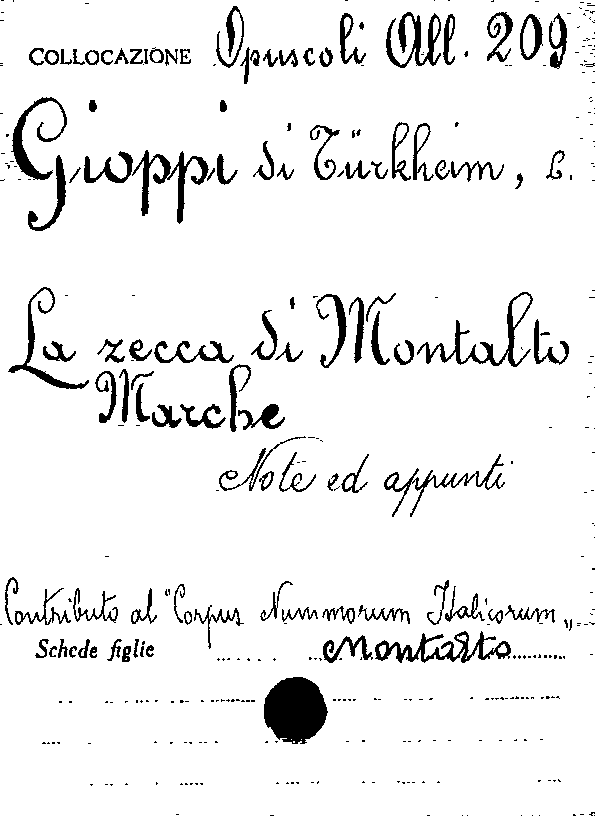 COLLOCAZIONE Opuscoli All. 209
Gioppi di Türkheim, L.
La zecca di Montalto
Marche
Note ed appunti
Contributo al "Corpus Nummorum Italicorum„
Schede figlie ...... Montalto